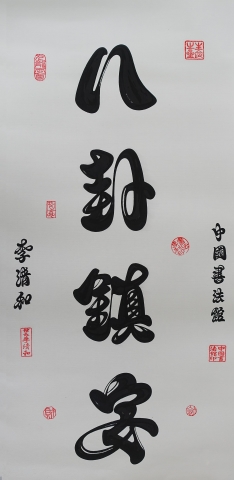 八卦鎮安
中國書法館
李清和